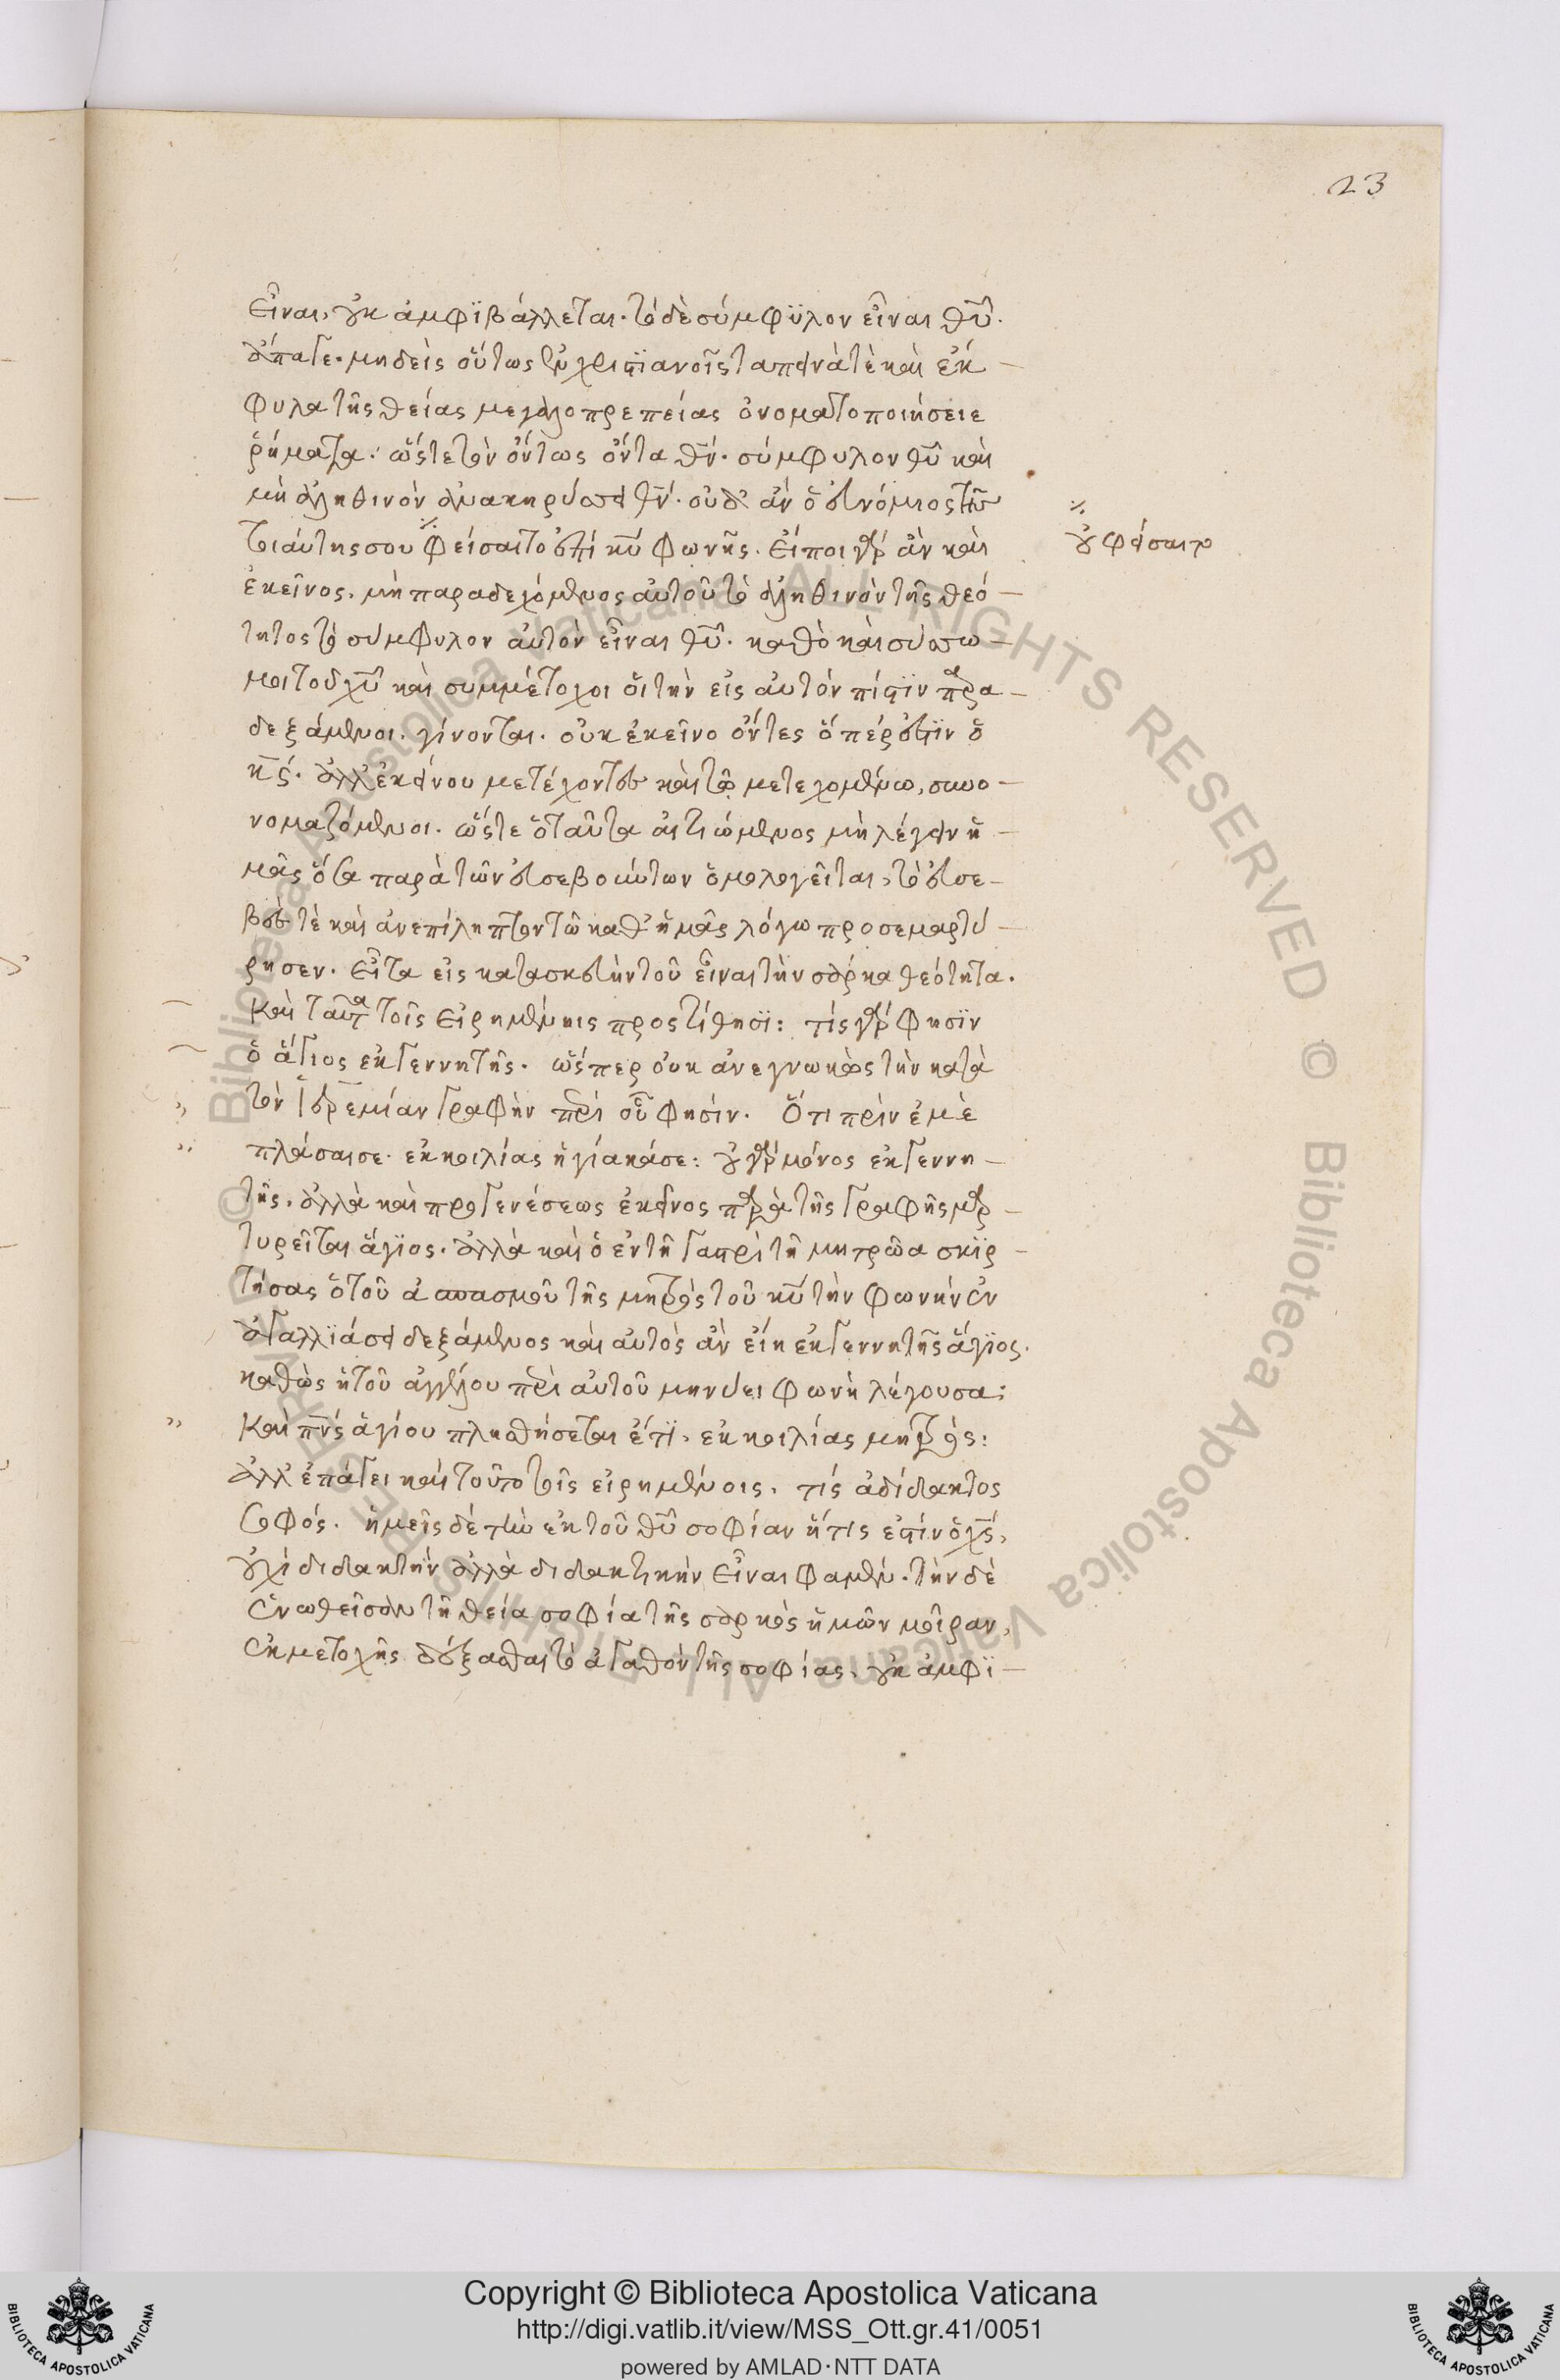 23
εἶναι, οὐκ ἀμφϊβάλλεται. τὸ δὲ σύμφϋλον εἶναι θῡ.
ἄπαγε. μηδεὶς οὕτως ἐν χριστϊανοῖς ταπεινὰ τὲ καὶ ἔκ-
φυλα τῆς θείας μεγαλοπρεπείας ὀνοματοποιήσειε
ῥήματα. ὥστε τὸν ὄντως ὄντα θν̄. σύμφυλον θῡ καὶ
μὴ ἀληθινὸν ἀνακηρύσσει θν̄. οὐδ' ἂν ὁ εὐνόμιος τῆς
τοιαύτης σου ⁒ φείσαιτο ἐπὶ κῡ φωνῆς. εἴποι γὰρ ἂν καὶ
⁒ οὐ φείσαιτο
ἐκεῖνος. μὴ παραδεχόμενος αὐτοῦ τὸ ἀληθινὸν τῆς θεό-
τητος τὸ σύμφυλον αὐτὸν εἶναι θῡ. καθὸ καὶ σύσσω-
μοι τοῦ χῡ καὶ συμμέτοχοι οἱ τὴν εἰς αὐτὸν πίστϊν παρα-
δεξάμενοι. γίνονται. οὐκ ἐκεῖνο ὄντες ὅπέρ ἐστϊν ὁ
κς̄. ἀλλ' ἐκείνου μετέχοντες καὶ τῷ μετεχομένω, συνο-
νομαζόμενοι. ὥστε ὁ ταῦτα αἰτιώμενος μὴ λέγειν ἡ-
μᾶς ὅσα παρὰ τῶν εὐσεβούντων ὁμολογεῖται, τὸ εὐσε-
βὲς τὲ καὶ ἀνεπίληπτον τῶ καθ' ἡμᾶς λόγω προσεμαρτύ-
ρησεν. εἶτα εἰς κατασκευὴν τοῦ εἶναι τὴν σάρκα θεότητα.
Καὶ ταῦτα τοῖς εἰρημένοις προστίθησϊ: τίς γὰρ φησϊν
ὁ ἅγιος ἐκ γεννητῆς. ὥσπερ οὐκ ἀνεγνωκὼς τὴν κατὰ
τὸν Ἱερεμίαν γραφὴν περὶ οὗ φησίν. Ὅτι πρὶν ἐμὲ
πλάσαι σε. ἐκ κοιλίας ἡγίακά σε: οὐ γὰρ μόνος ἐκ γεννη-
τῆς. ἀλλὰ καὶ πρὸ γενέσεως ἐκεῖνος παρὰ τῆς γραφῆς μαρ-
τυρεῖται ἅγϊος. ἀλλὰ καὶ ὁ ἐν τῆ γαστρὶ τῆ μητρῶα σκϊρ-
τήσας ὁ τοῦ ἀσπασμοῦ τῆς μητρὸς τοῦ κῡ τὴν φωνὴν ἐν
ἀγαλλϊάσει δεξάμενος καὶ αὐτὸς ἂν εἴη ἐκ γεννητῆς ἅγϊος.
καθὼς ἡ τοῦ ἀγγέλου περὶ αὐτοῦ μηνύει φωνὴ λέγουσα:
Καὶ πνς̄ ἁγίου πλησθήσεται ἔτϊ, ἐκ κοιλίας μητρός:
ἀλλ' ἐπάγει καὶ τοῦτο τοῖς εἰρημένοις. τίς ἀδίδακτος
σοφός. ἡμεῖς δὲ τὴν ἐκ τοῦ θῡ σοφίαν ἥτις ἐστὶν ὁ χς̄,
οὐχὶ διδακτὴν ἀλλὰ διδακτικὴν εἶναι φαμέν. τὴν δὲ
ἑνωθεῖσαν τῆ θεία σοφία τῆς σαρκὸς ἡμῶν μοῖραν,
ἐκ μετοχῆς δέξασθαι τὸ ἀγαθὸν τῆς σοφίας, οὐκ ἀμφϊ-
© Biblioteca Apostolica Vaticana ALL RIGHTS RESERVED
Copyright © Biblioteca Apostolica Vaticana
http://digi.vatlib.it/view/MSS_Ott.gr.41/0051
powered by AMLAD·NTT DATA
BIBLIOTECA APOSTOLICA VATICANA
BIBLIOTECA APOSTOLICA VATICANA